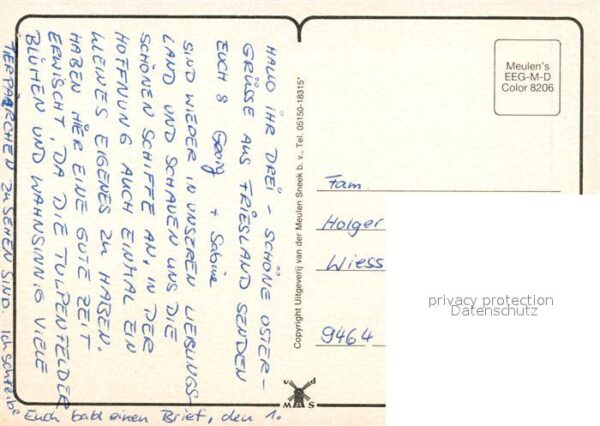 HALLO IHR DREI - SCHÖNE OSTER-
GRÜSSE AUS FRIESLAND SENDEN
EUCH 3 Georg + Sabine
SIND WIEDER IN UNSEREN LIEBLINGS-
LAND UND SCHAUEN UNS DIE
SCHÖNEN SCHIFFE AN, IN DER
HOFFNUNG AUCH EINMAL EIN
KLEINES EIGENES ZU HABEN.
HABEN HIER EINE GUTE ZEIT
ERWISCHT, DA DIE TULPENFELDER
BLÜHEN UND WAHNSINNIG VIELE
TIERPÄRCHEN ZU SEHEN SIND. Ich schreibe
Euch bald einen Brief, den 1.
Copyright Uitgeverij van der Meulen Sneek b.v., Tel. 05150-18315*
Meulen's
EEG-M-D
Color 8206
Fam.
Holger
Wiess
9464
privacy protection
Datenschutz
v d
M S